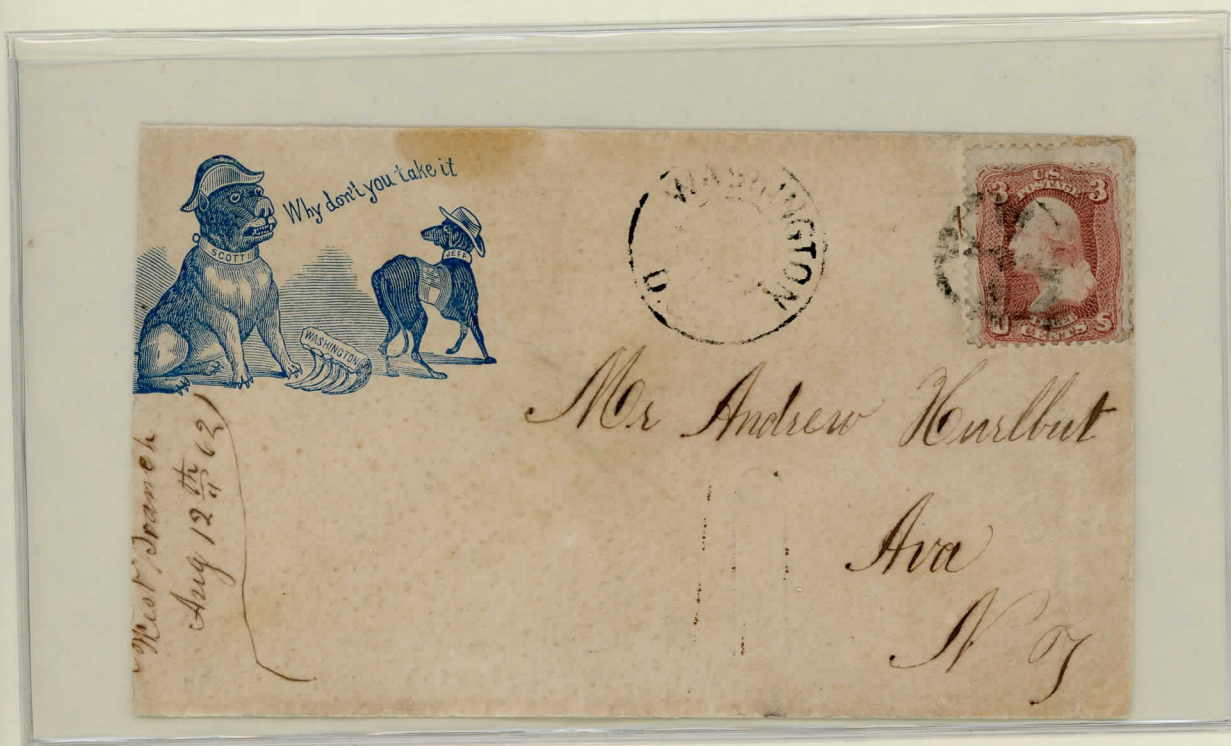 Why don't you take it
SCOTT
JEFF
WASHINGTON
WASHINGTON
D
U.S.
POSTAGE
3 3
U S
CENTS
Mr Andrew Hurlbut
Ava
N Y
West Branch
Aug 12th 62